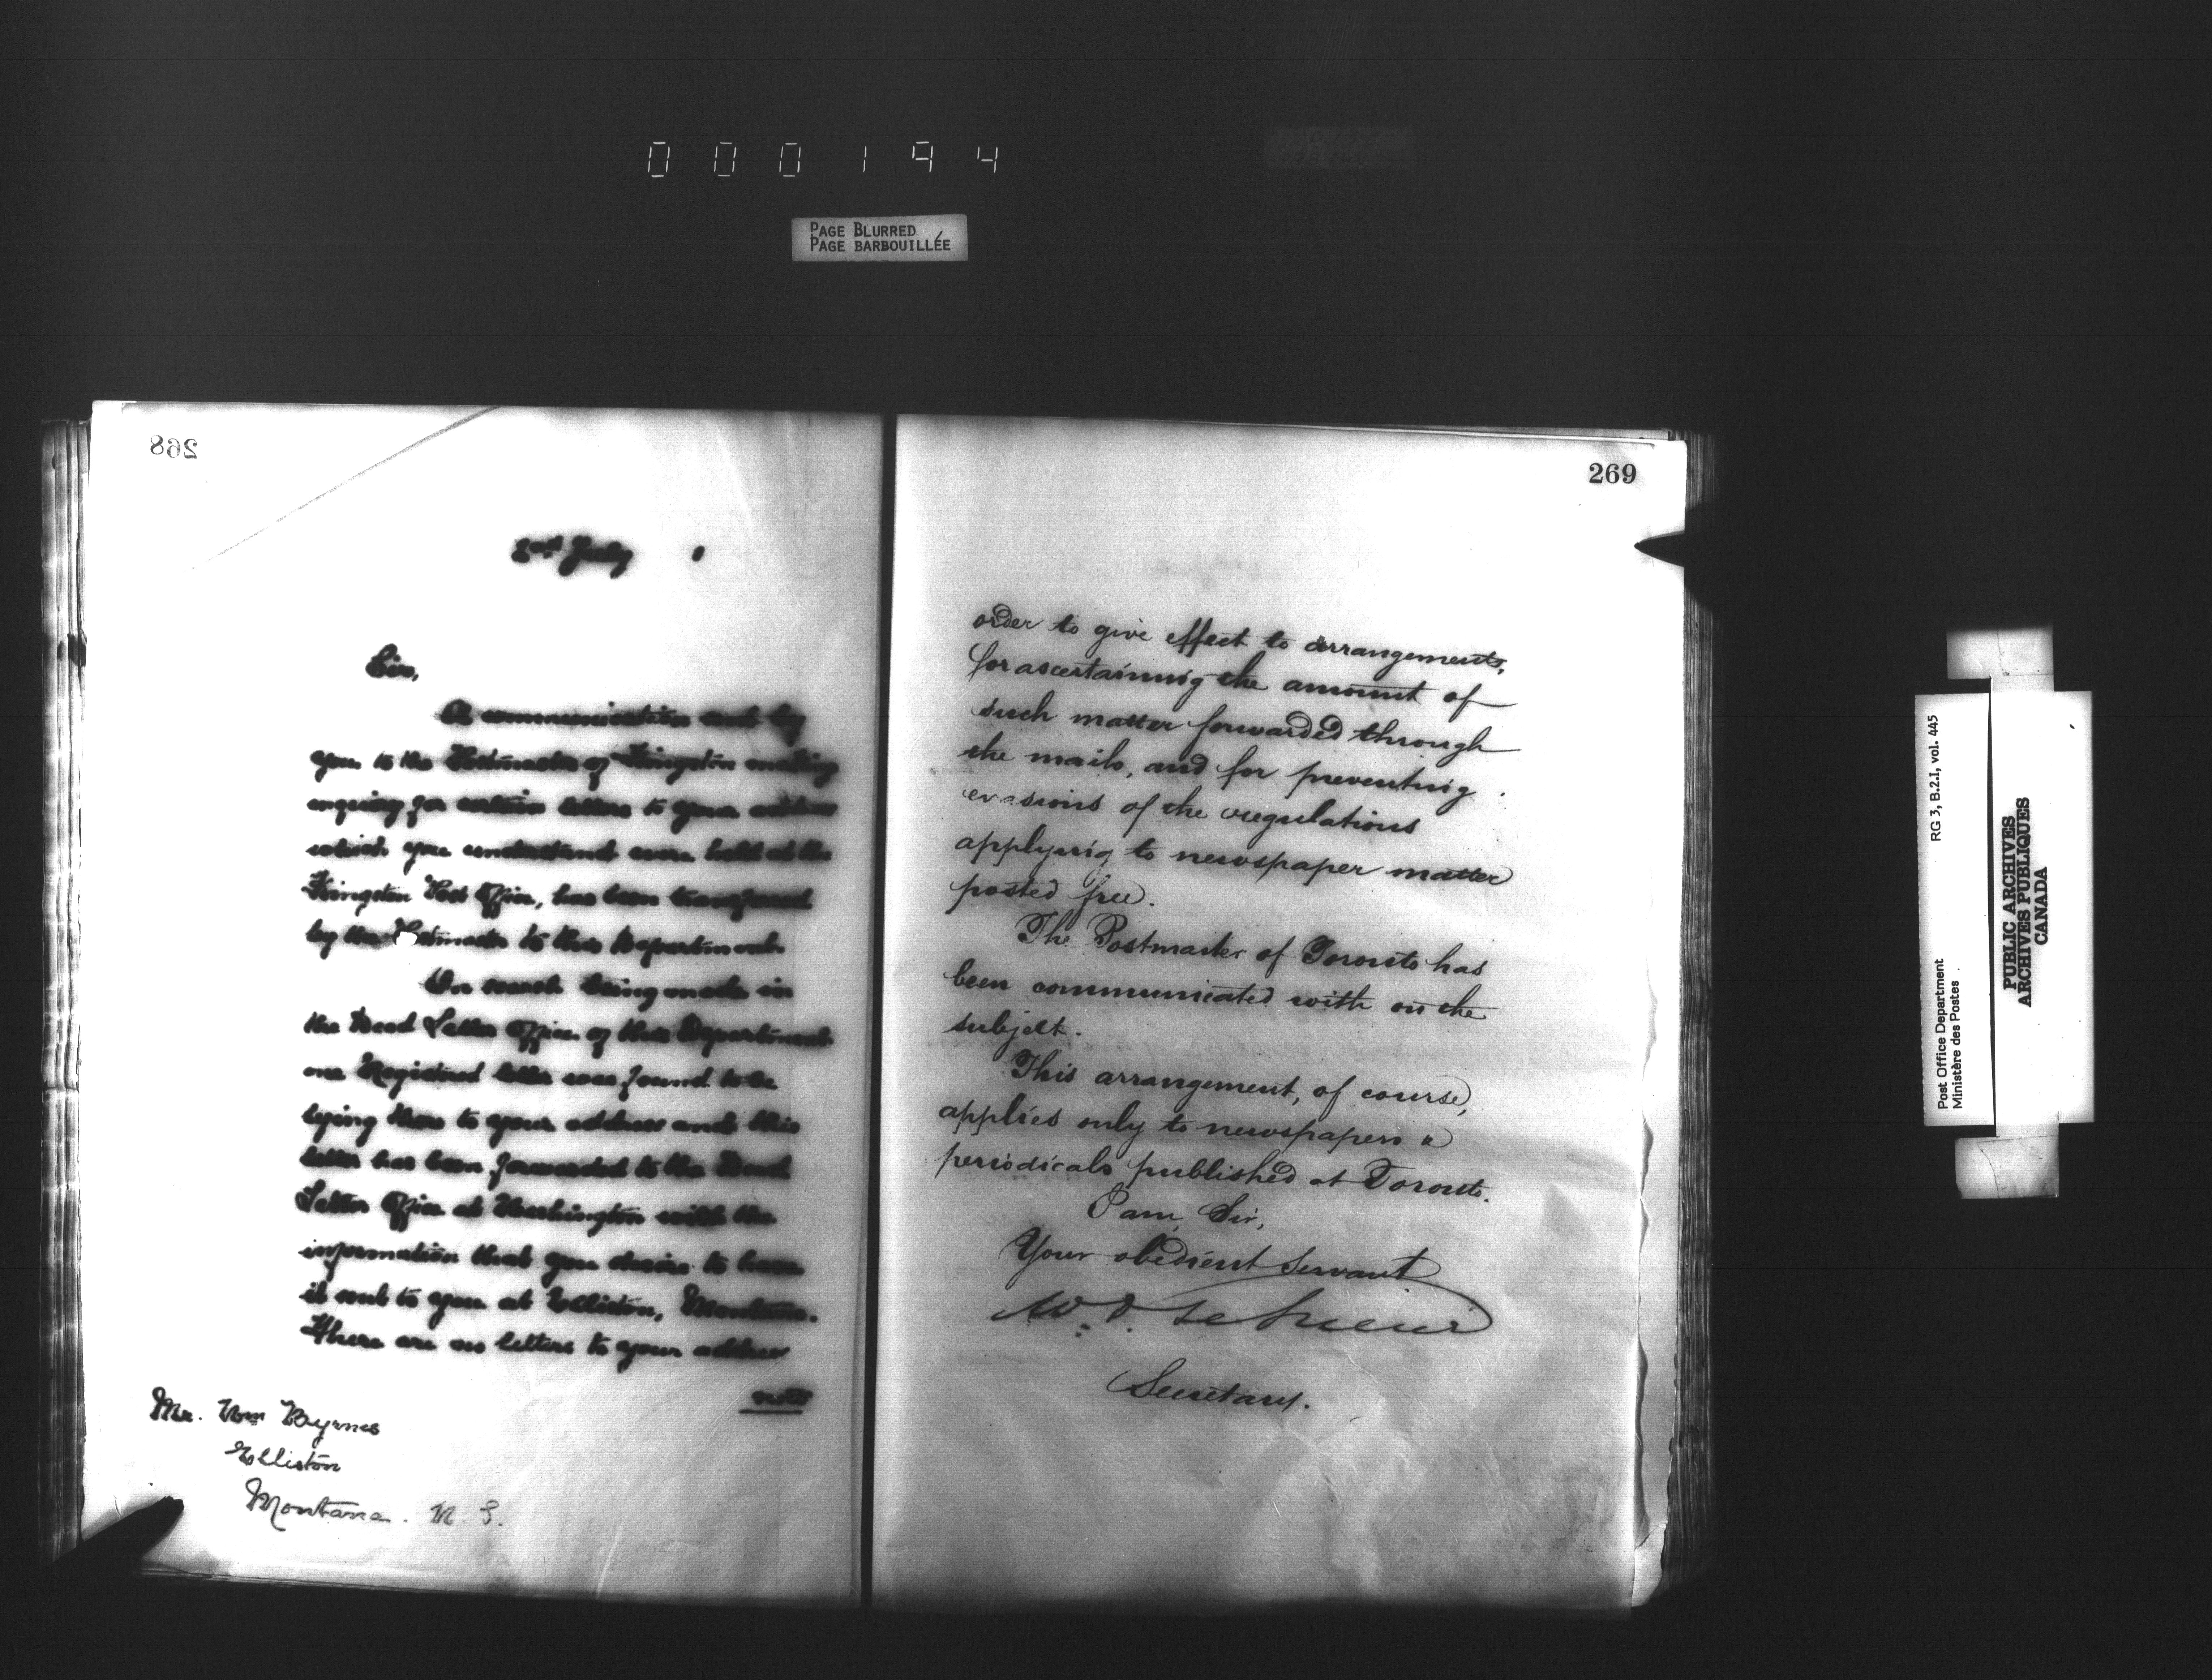 000194
PAGE BLURRED
PAGE BARBOUILLÉE
268
2nd July
Sir,
A communication sent by
you to the Postmaster of Kingston making
enquiry for certain letters to your address
which you understand were held at the
Kingston Post Office, has been transferred
by the Postmaster to this Department.
On search being made in
the Dead Letter Office of this Department
one Registered letter was found to be
lying there to your address and this
letter has been forwarded to the Dead
Letter Office at Washington with the
information that you desire to have
it sent to you at Elliston, Montana.
There are no letters to your address
now
Mr. Wm Byrnes
Elliston
Montana.
269
order to give effect to arrangements,
for ascertaining the amount of
such matter forwarded through
the mails, and for preventing
evasions of the regulations
applying to newspaper matter
posted free.
The Postmaster of Toronto has
been communicated with on the
subject.
This arrangement, of course,
applies only to newspapers &
periodicals published at Toronto.
I am, Sir,
Your obedient Servant
W. D. LeSueur
Secretary.
Post Office Department
Ministère des Postes
RG 3, B.2.I, vol. 445
PUBLIC ARCHIVES
ARCHIVES PUBLIQUES
CANADA